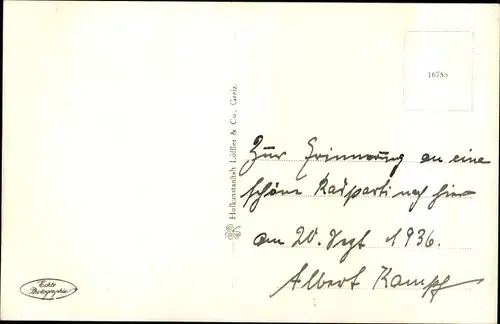 16755
Hofkunstanstalt Löffler & Co., Greiz.
Zur Erinnerung an eine
schöne Radparti nach hier
am 20. Sept 1936.
Albert Kampf
Echte
Photographie